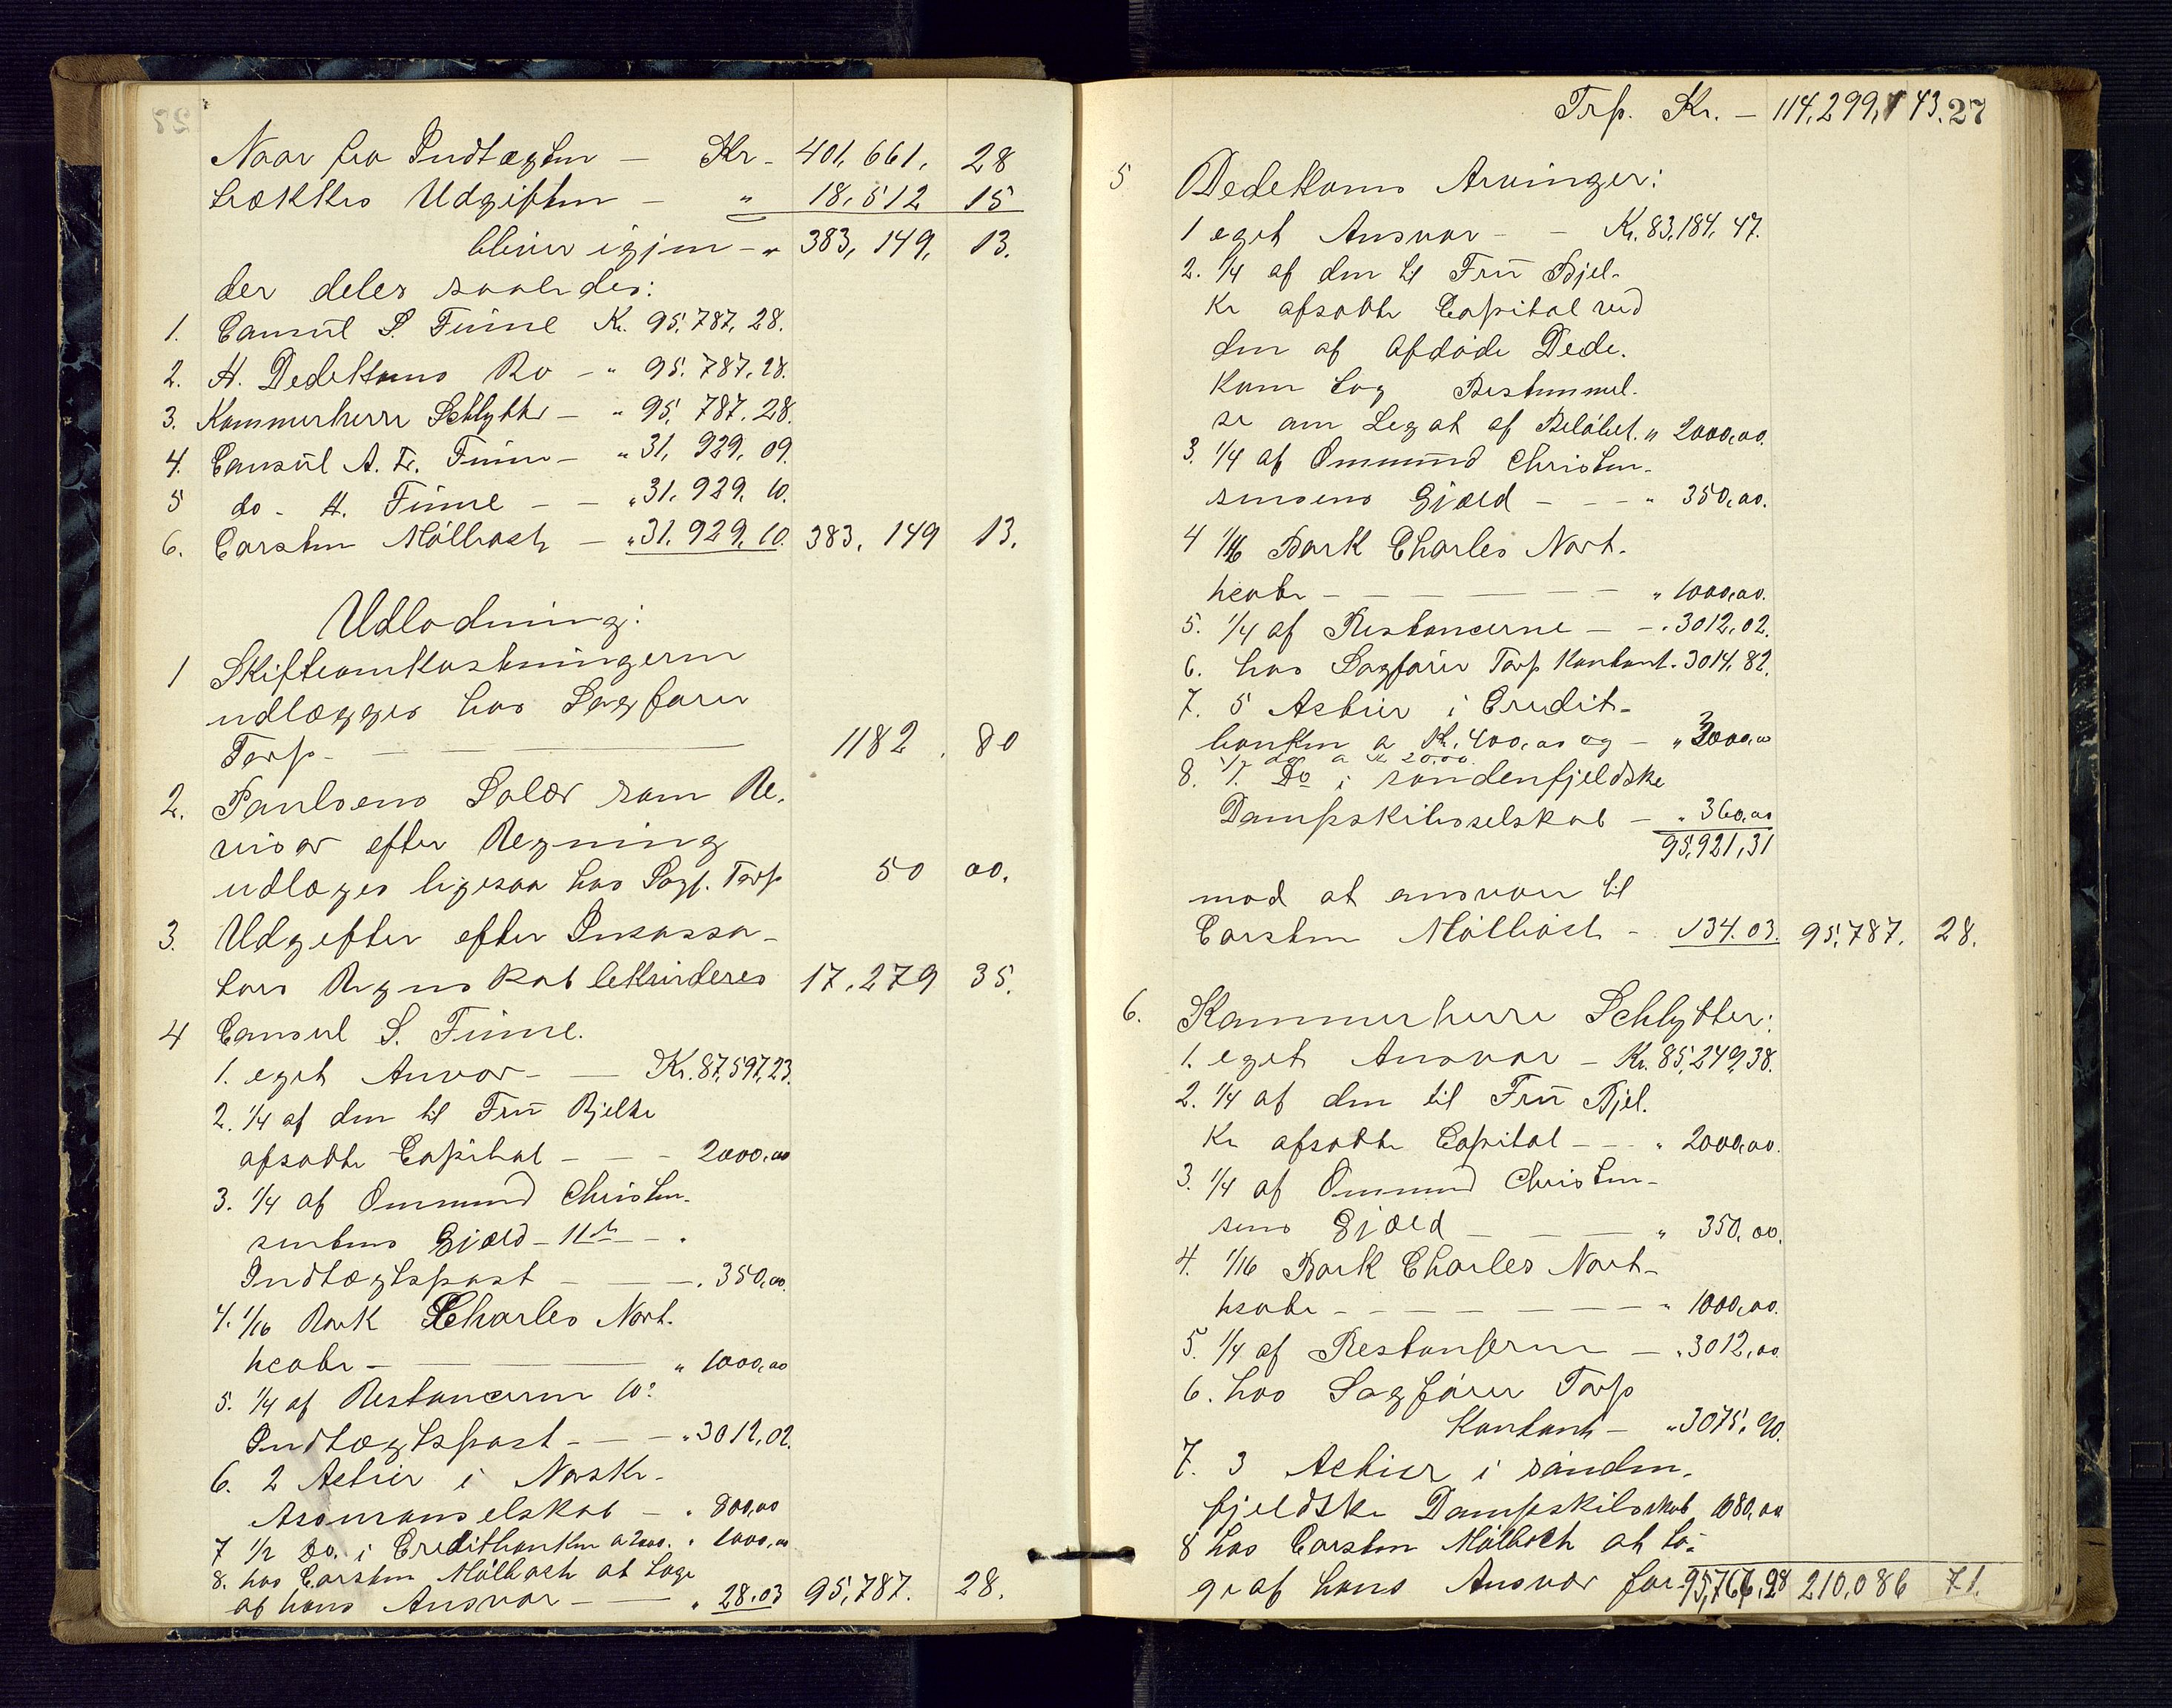 Naar fra Indtægten - Kr - 401,661, 28
trækkes Udgiften - " 18,512 15
bliver igjen - " 383,149, 13.
der deles saaledes:
1. Consul S. Finne Kr. 95,787,28.
2. H. Dedekams Bo - " 95.787,28.
3. Kammerherre Schlytter - " 95,787.28.
4. Consul A. Fr. Finne - " 31,929,09.
5 do - H. Finne - - " 31.929.10.
6. Carsten Mölbach - " 31.929.10 383,149 13.
Udlodning:
1 Skifteomkostningerne
udlægges hos Sagfører
Tarp - 1182. 80
2. Paulsens Salær som Re-
visor efter Regning
udlæges ligesaa hos Sagf. Tarp 50 00.
3. Udgifter efter Incassa-
tors Regnskab lekvideres 17,279 35.
4 Consul S. Finne.
1. eget Anvar - - Kr. 87,597,23.
2. 1/4 af den til Frū Bjelke
afsatte Capital - - - 2000,00
3. 1/4 af Ommund Christen-
sentens Gjæld - 11te - .
Indtægtspost - - - . 350,00.
4. 1/16 Bark Charles Nort-
hcote - " 1000,00
5. 1/4 af Restancerne 10:
Indtægtspost - - - " 3012,02.
6. 2 Actier i Norske
Assuranselskab - . 800,00
7 1/2 Do. i Creditbanken a 2000. " 1000,00
8. hos Carsten Mölbach at tage
af hans Ansvar - " 28.03 95,787. 28.
Trp. Kr. - 114,299, 43. 27
5 Dedekams Arvinger:
1 eget Ansvar - - Kr. 83,184,47.
2. 1/4 af den til Frū Bjel-
ke afsatte Capital ved
den af Afdøde Dede-
kam tog Bestemmel-
se om Legat af Beløbet. " 2000,00.
3. 1/4 af Ommūnd Christen-
sensens Gjæld - - - " 350,00.
4 1/16 Bark Charles Nort-
hcote - - - - - - " 1000,00.
5. 1/4 af Restancerne - - . 3012,02.
6. hos Sagfører Tarp Kontant. 3014,82.
7. 5 Actier i Credit-
banken a Kr. 400,00 og - " 3000,00
1/2 do a Kr 2000.
8. 1 Do i søndenfjeldske
Dampskibsselskab - " 360,00
95,921,31
mod at ansvare til
Carsten Mölbach - 134.03. 95,787. 28.
6. Kammerherre Schlytter:
1. eget Ansvar - Kr. 85,249,38.
2. 1/4 af den til Frū Bjel-
ke afsatte Capital - - - " 2000,00.
3. 1/4 af Ommund Christen-
sens Gjæld - - " 350,00.
4. 1/16 Bark Charles Nort-
hcote - - - - - - " 1000,00.
5. 1/4 af Restanserne - " 3012,00
6. hos Sagfører Tarp
Kontant - " 3075,90.
7. 3 Actier i sönden-
fjeldske Dampskibsskab 1080,00
8 hos Carsten Mölbach at ta-
ge af hans Ansvar for 95,767,28 210,086 71.